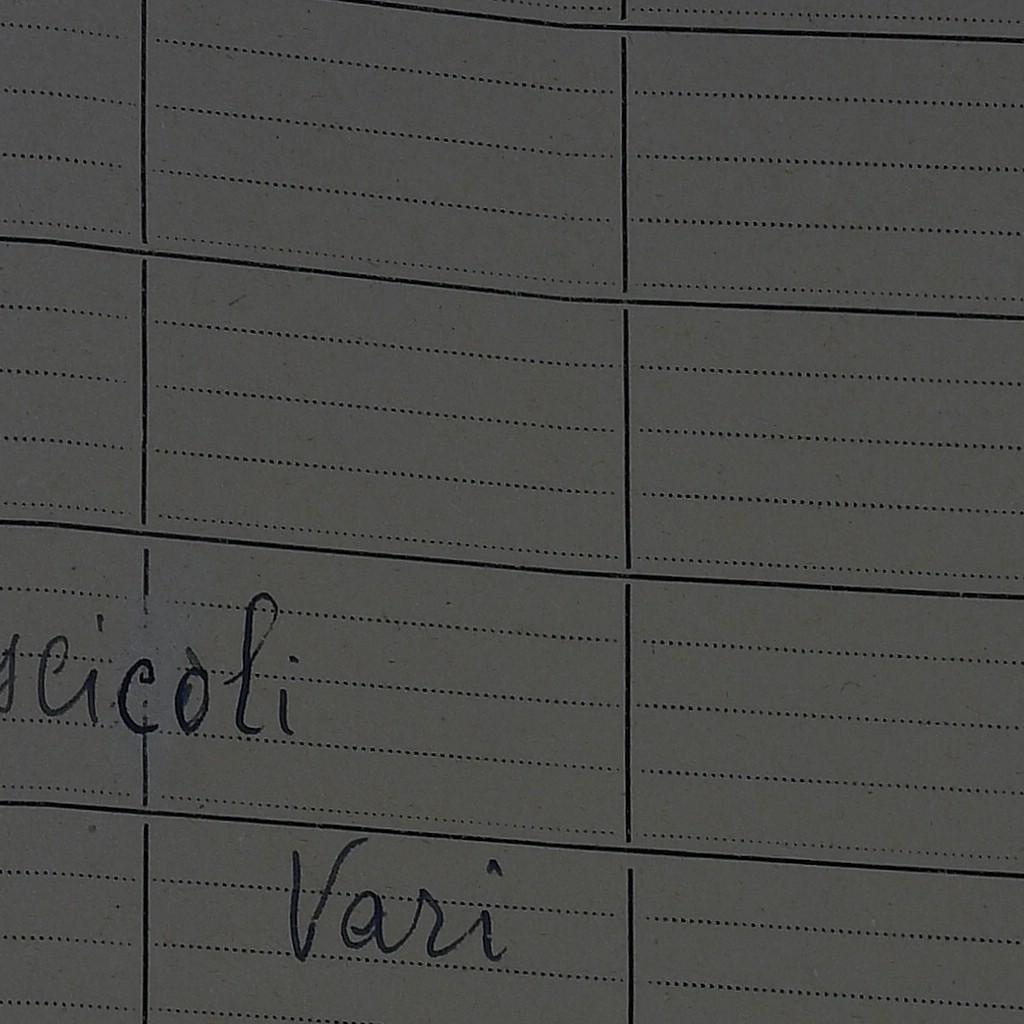 scicoli
Vari